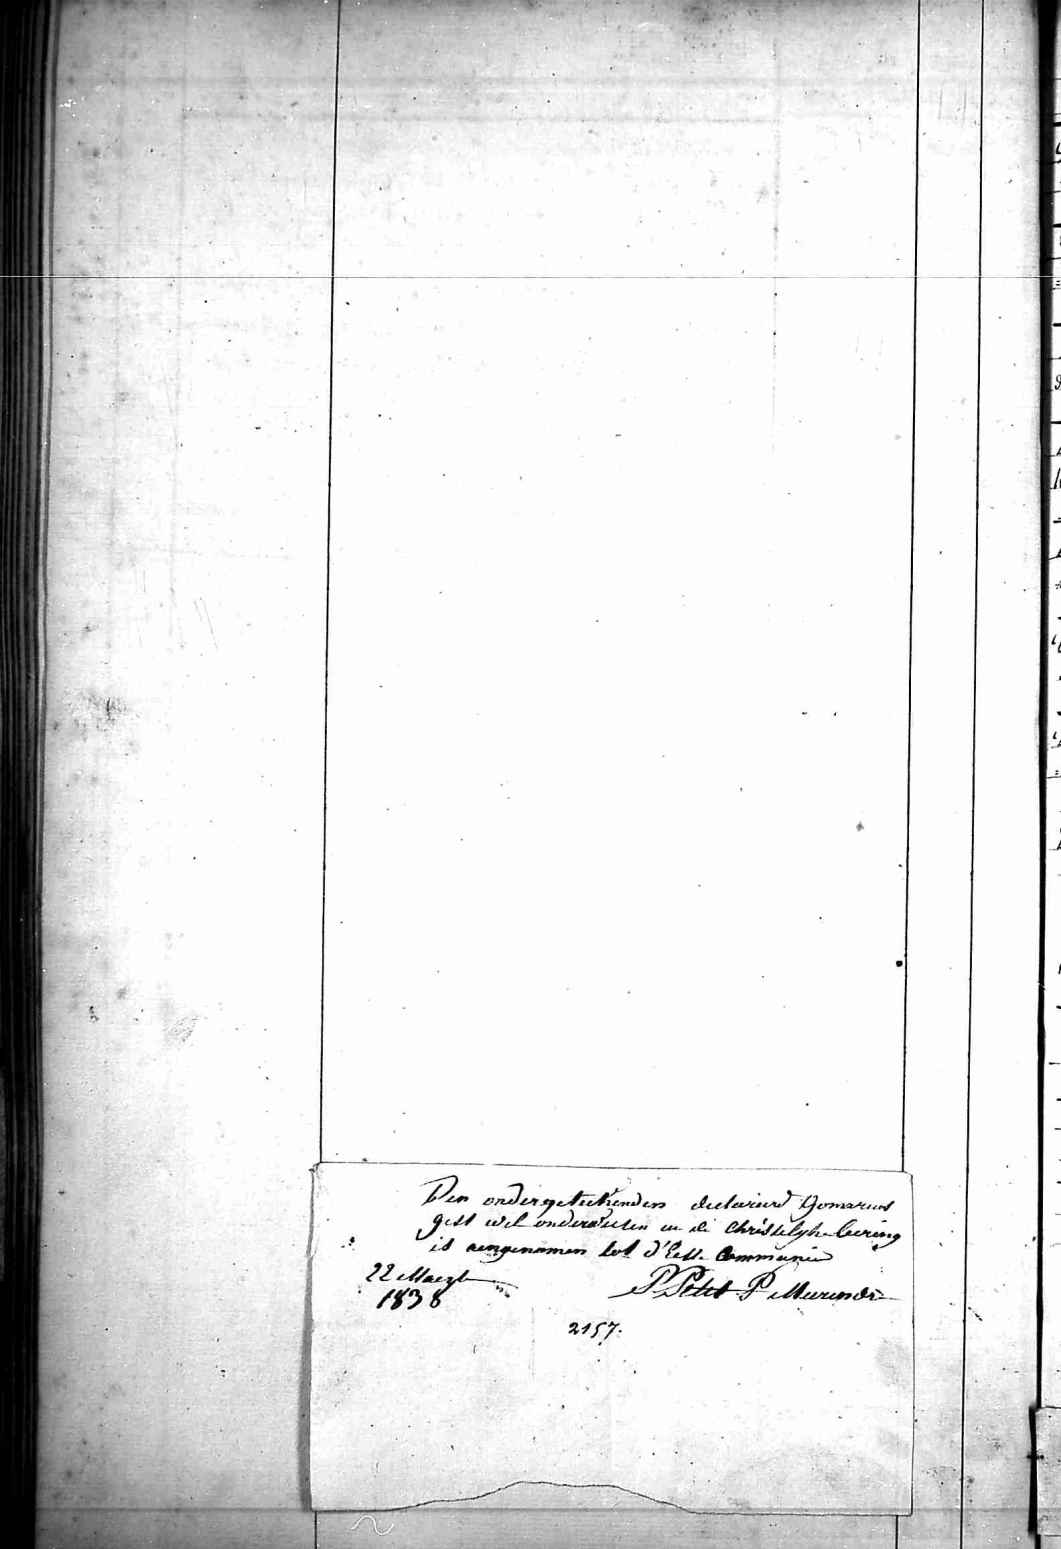 Den ondergeteekenden declareerd Gomarus
Gest wel onderweesen in de Christelyke leering
is aengenomen tot d'Eerste Communie
22 Maezt P Petit P Meerendr
1838
2157.